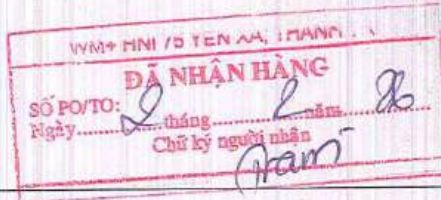 WM+ HNI 75 YÊN XÁ, THANH
ĐÃ NHẬN HÀNG
SỐ PO/TO:
Ngày 2 tháng 2 năm 26
Chữ ký người nhận